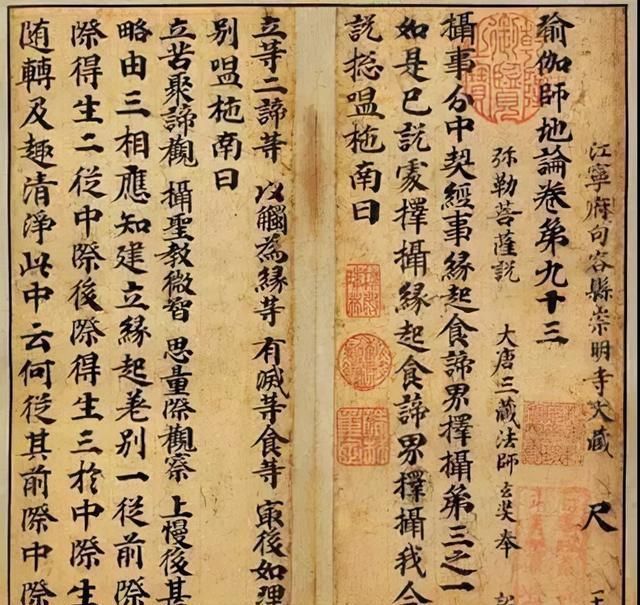 江寧府句容縣崇明寺大藏 尺
瑜伽師地論卷第九十三
弥勒菩薩說 大唐三藏法師玄奘奉
攝事分中契經事緣起食諦界擇攝第三之一
如是已說處擇攝緣起食諦界擇攝我今
說揔嗢柁南曰
立等二諦等 以觸為緣等 有滅等食等 㝡後如理
別嗢柁南曰
立苦聚諦觀 攝聖教微智 思量際觀察 上慢後甚
略由三相應知建立緣起差別一從前際
際得生二從中際後際得生三於中際生
随轉及趣清淨此中云何從其前際中際